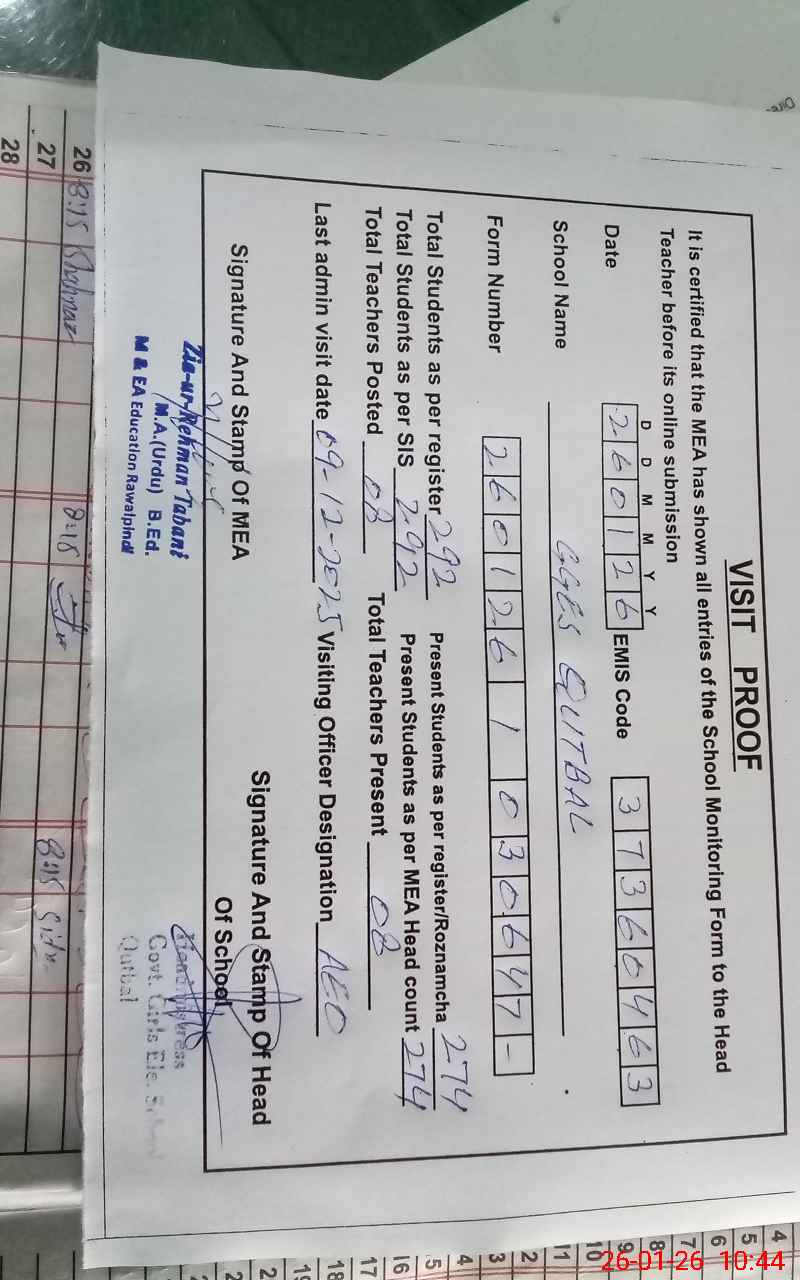 VISIT PROOF
It is certified that the MEA has shown all entries of the School Monitoring Form to the Head
Teacher before its online submission
D D M M Y Y
Date 260126 EMIS Code 37360463
School Name GGES QUITBAL
Form Number 260126 1 030647-
Total Students as per register 292 Present Students as per register/Roznamcha 274
Total Students as per SIS 292 Present Students as per MEA Head count 274
Total Teachers Posted 08 Total Teachers Present 08
Last admin visit date 09-12-2025 Visiting Officer Designation AEO
Signature And Stamp Of MEA Signature And Stamp Of Head
Of School
Zia-ur-Rehman Tabani
M.A.(Urdu) B.Ed.
M & EA Education Rawalpindi
Headmistress
Govt. Girls Ele. School
Qutbal
26 8:15 Shahnaz 8:15
27 8:15
28
4
5
6
7
8
9
10
11
2
3
4
5
16
17
18
26-01-26 10:44